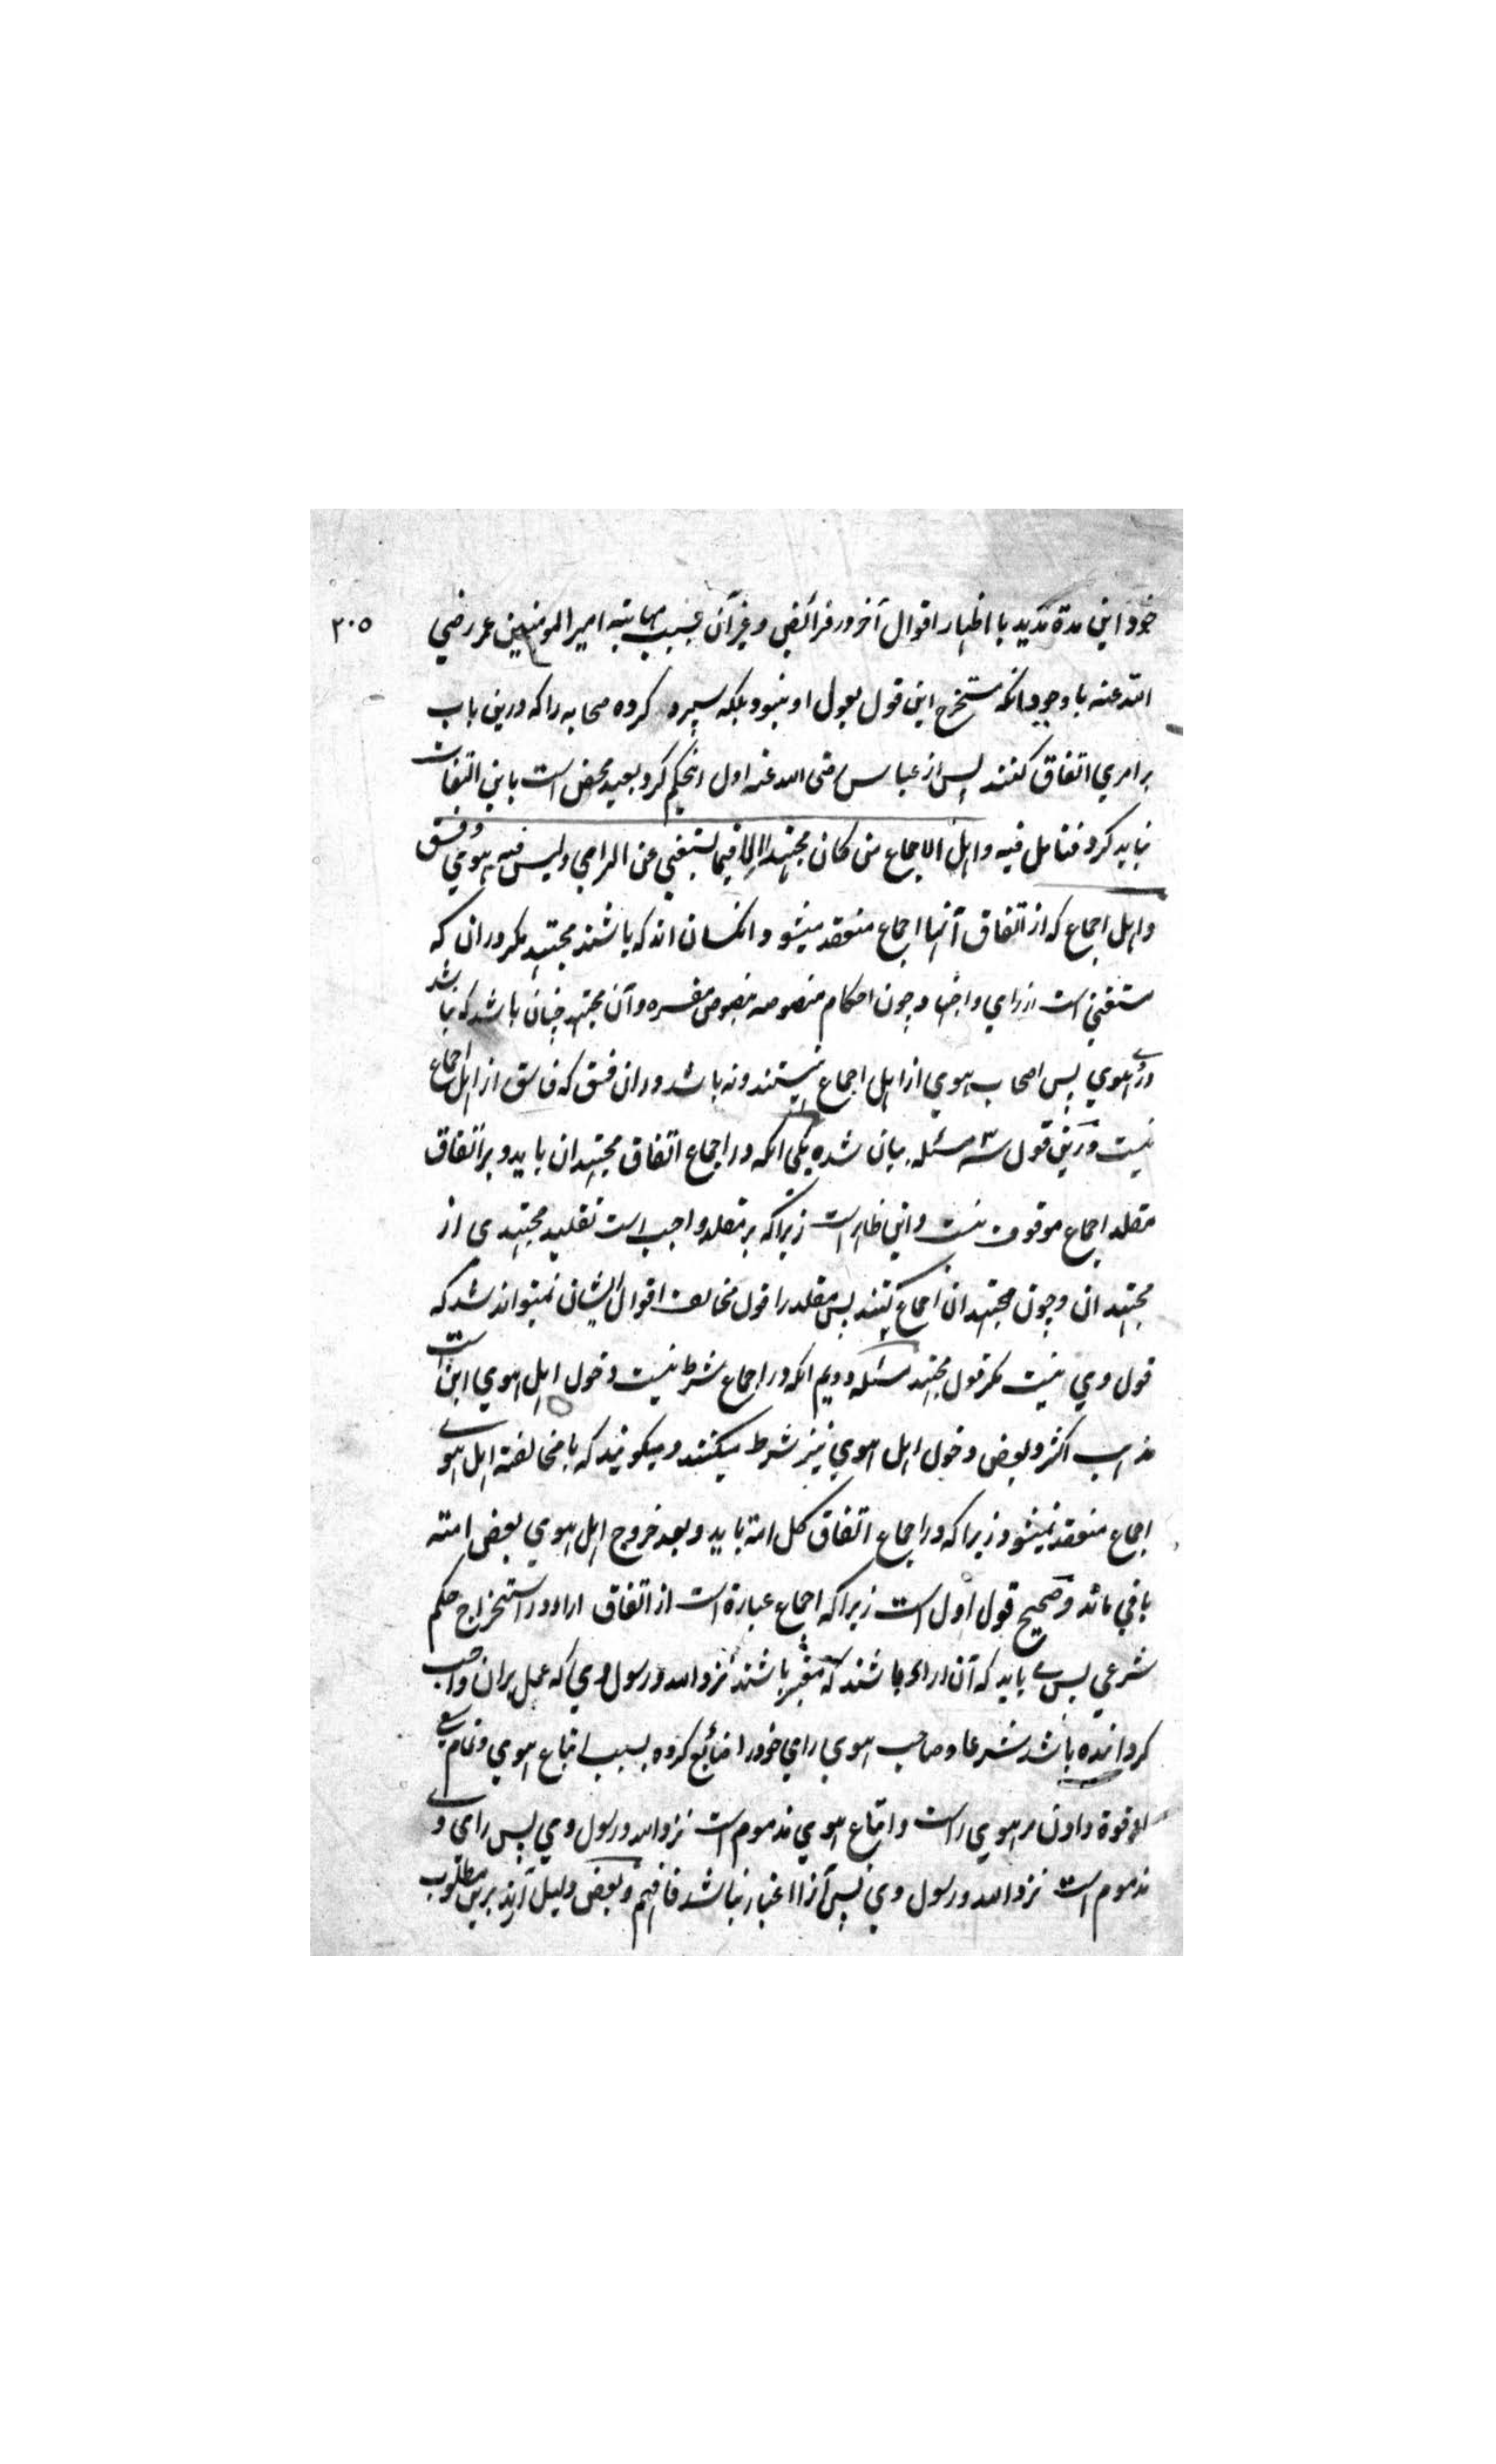 ۳۰۵
خود این مدة مدید با اظهار اقوال آخر در فرائض و غیر آن بسبب مهابته امیر المومنین عمر رضي
الله عنه با وجود آنکه مستخرج این قول بعول او نبود بلکه سپرد کرده صحابه را که درین باب
بر امري اتفاق کنند پس از عباس رضی الله عنه اول اینحکم کرد بعید محض است باین التفات
نباید کرد فتامل فیه واهل الاجماع من کان مجتهدا الا فیما یستغني عن الراي ولیس فیه هوي وفسق
و اهل اجماع که از اتفاق آنها اجماع منعقد میشود آنکسان اند که باشند مجتهد مگر در ان که
مستغني است از راي و اجتهاد چون احکام منصوصه بنصوص مفسره و آن مجتهد چنان باشد که نباشد
در وے هوي پس اصحاب هوي از اهل اجماع نیستند و نه باشد در ان فسق که فاسق از اهل اجماع
نیست و درین قول سه مسئله بیان شده یکي آنکه در اجماع اتفاق مجتهدان باید و بر اتفاق
مقلد اجماع موقوف نیست و این ظاهر است زیرا که بر مقلد واجب است تقلید مجتهدی از
مجتهدان و چون مجتهدان اجماع کنند پس مقلد را قول مخالف اقوال ایشان نمیتواند شد که
قول وي نیست مگر قول مجتهد مسئله دویم آنکه در اجماع شرط نیست دخول اهل هوي این است
مذهب اکثر و بعض دخول اهل هوي نیز شرط میکنند و میگویند که با مخالفة اهل هوے
اجماع منعقد نمیشود زیرا که در اجماع اتفاق کل امة باید و بعد خروج اهل هوي بعض امته
باقي ماند و صحیح قول اول است زیرا که اجماع عبارة است از اتفاق اراء در استخراج حکم
شرعي پس باید که آن اراء باشند که معتبر باشند نزد الله و رسول وي که عمل بران واجب
گردانیده باشد شرعا و صاحب هوي راي خود را ضائع کرده بسبب اتباع هوي و تمام سعے
او قوة دادن مر هوي راست و اتباع هوي مذموم است نزد الله و رسول وي پس راي وے
مذموم است نزد الله و رسول وي پس آنرا اعتبار نباشد فافهم و بعض دلیل آرند برین مطلوب